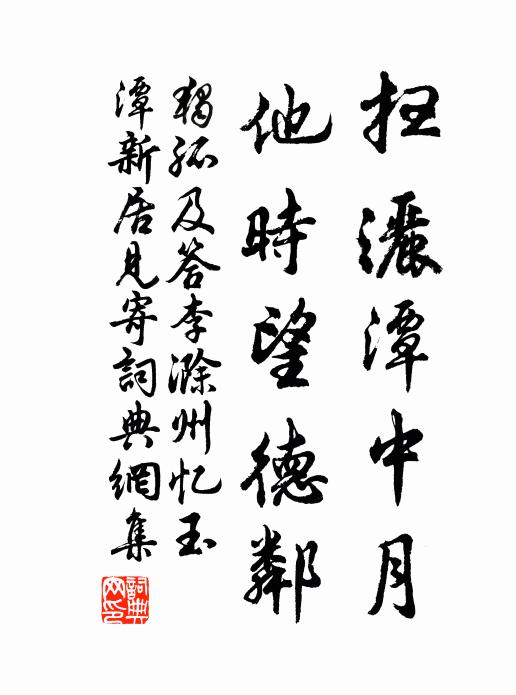 扫灑潭中月
他時望德鄰
獨孤及答李滁州忆玉
潭新居見寄詞典網集
詞典网印